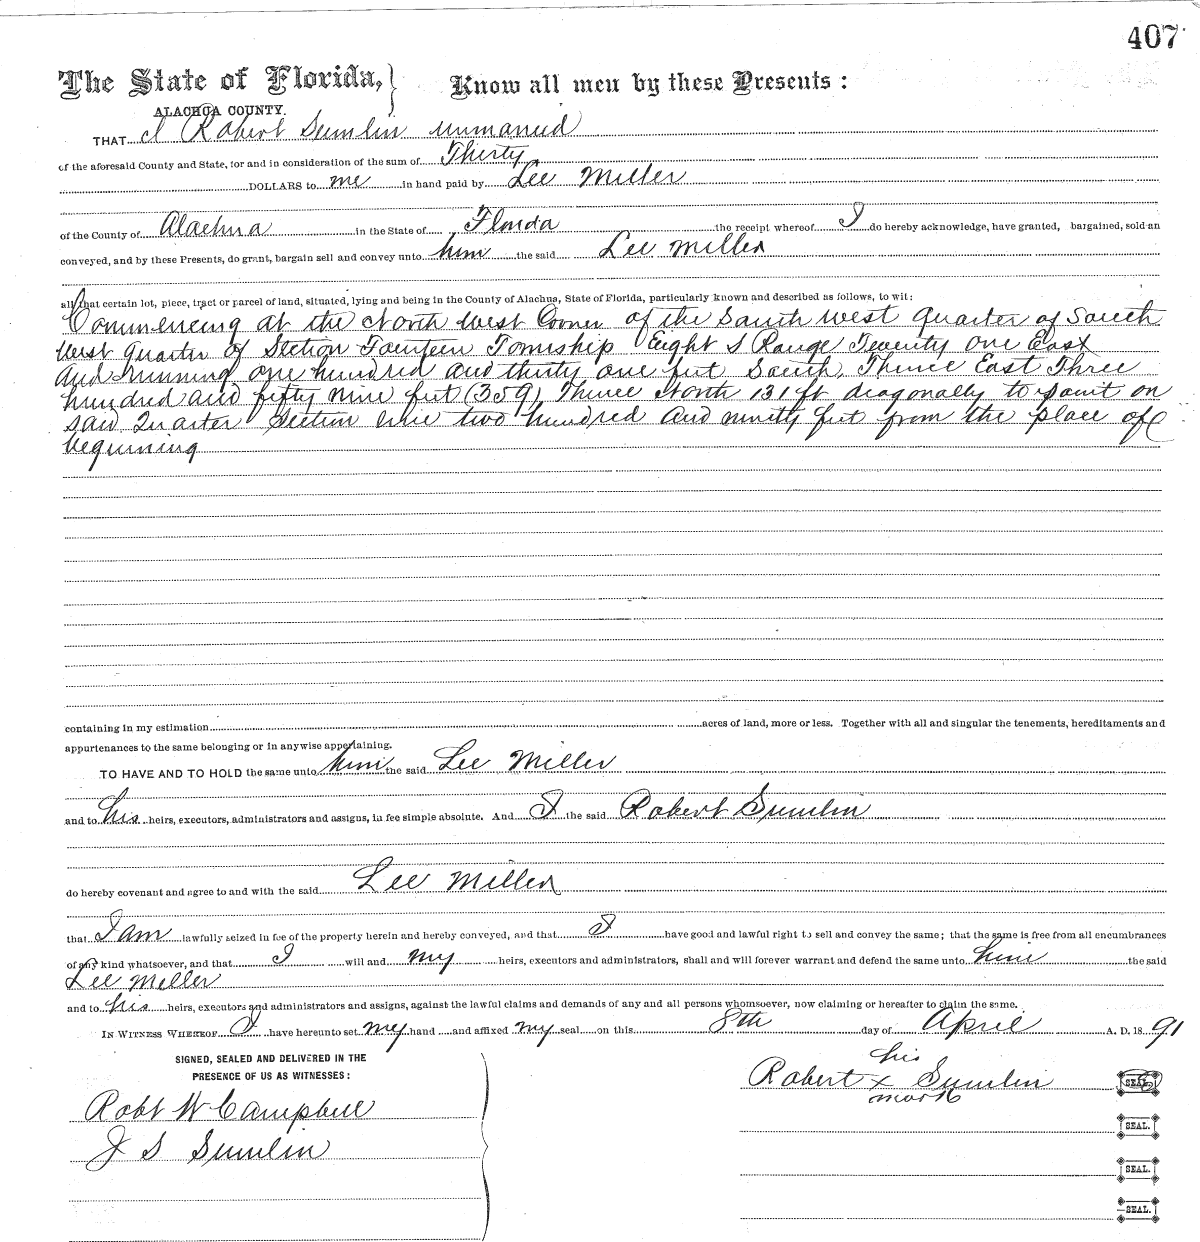 407
The State of Florida, } Know all men by these Presents:
ALACHUA COUNTY.
THAT I Robert Sumlin unmarried
of the aforesaid County and State, for and in consideration of the sum of Thirty
DOLLARS to me in hand paid by Lee Miller
of the County of Alachua in the State of Florida the receipt whereof I do hereby acknowledge, have granted, bargained, sold an
conveyed, and by these Presents, do grant, bargain sell and convey unto him the said Lee Miller
all that certain lot, piece, tract or parcel of land, situated, lying and being in the County of Alachua, State of Florida, particularly known and described as follows, to wit:
Commencing at the North West Corner of the South West quarter of South
West quarter of Section Fourteen Township Eight S Range Twenty one East
And running one hundred and thirty one feet South, Thence East Three
hundred and fifty nine feet (359) Thence North 131 ft diagonally to point on
said Quarter Section line two hundred and ninety feet from the place of
beginning
containing in my estimation acres of land, more or less. Together with all and singular the tenements, hereditaments and
appurtenances to the same belonging or in anywise appertaining.
TO HAVE AND TO HOLD the same unto him the said Lee Miller
and to his heirs, executors, administrators and assigns, in fee simple absolute. And I the said Robert Sumlin
do hereby covenant and agree to and with the said Lee Miller
that I am lawfully seized in fee of the property herein and hereby conveyed, and that I have good and lawful right to sell and convey the same; that the same is free from all encumbrances
of any kind whatsoever, and that I will and my heirs, executors and administrators, shall and will forever warrant and defend the same unto him the said
Lee Miller
and to his heirs, executors and administrators and assigns, against the lawful claims and demands of any and all persons whomsoever, now claiming or hereafter to claim the same.
IN WITNESS WHEREOF I have hereunto set my hand and affixed my seal on this 8th day of April A. D. 1891
SIGNED, SEALED AND DELIVERED IN THE
PRESENCE OF US AS WITNESSES:
his
Robert x Sumlin SEAL.
mark
Robt W Campbell
SEAL.
J S Sumlin
SEAL.
SEAL.